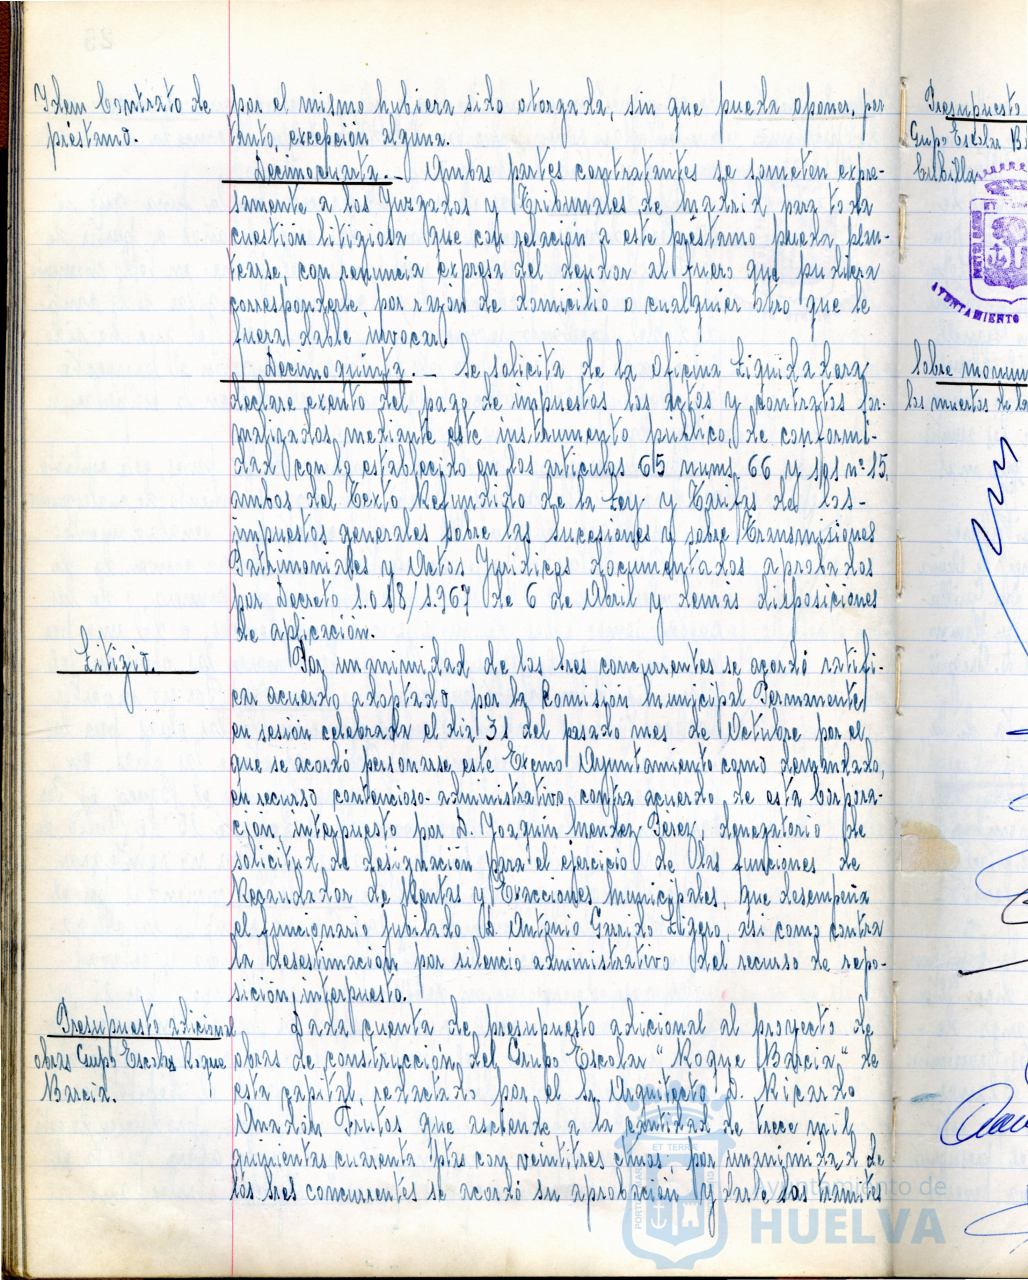 Idem Contrato de
préstamo.
por el mismo hubiera sido otorgada, sin que pueda oponer, por
tanto, excepción alguna.
Decimocuarta.- Ambas partes contratantes se someten expre-
samente a los Juzgados y Tribunales de Madrid para toda
cuestión litigiosa que con relación a este préstamo pueda plan-
tearse, con renuncia expresa del deudor al fuero que pudiera
corresponderle por razón de domicilio o cualquier otro que le
fuera dable invocar.
Decimoquinta.- Se solicita de la Oficina Liquidadora
declare exento del pago de impuestos los actos y contratos for-
malizados mediante este instrumento público, de conformi-
dad con lo establecido en los artículos 65 num. 66 y 101 nº 15,
ambos del Texto Refundido de la Ley y Tarifas de los-
impuestos generales sobre las Sucesiones y sobre Transmisiones
Patrimoniales y Actos Jurídicos documentados aprobados
por Decreto 1.018/1.967 de 6 de Abril y demás disposiciones
de aplicación.
Litigio.
Por unanimidad de los tres concurrentes se acordó ratifi-
car acuerdo adoptado por la Comisión Municipal Permanente
en sesión celebrada el día 31 del pasado mes de Octubre por el
que se acordó personarse este Excmo Ayuntamiento como demandado,
en recurso contencioso-administrativo contra acuerdo de esta Corpora-
ción, interpuesto por D. Joaquín Mendez Perez, denegatorio de
solicitud de designación para el ejercicio de las funciones de
Recaudador de Rentas y Exacciones Municipales, que desempeña
el funcionario jubilado D. Antonio Garrido Ligero, asi como contra
la desestimación por silencio administrativo del recurso de repo-
sición interpuesto.
Presupuesto adicional
obras Grupo Escolar Roque
Barcia.
Dada cuenta de presupuesto adicional al proyecto de
obras de construcción del Grupo Escolar "Roque Barcia" de
esta capital, redactado por el Sr. Arquitecto D. Ricardo
Anadón Frutos que asciende a la cantidad de trece mil
quinientas cuarenta Ptas con veintitres ctmos por unanimidad de
los tres concurrentes se acordó su aprobación y darle los trámites
Presupuesto
Grupo Escolar
AYUNTAMIENTO
Sobre
los muertos de
Ayuntamiento de
HUELVA